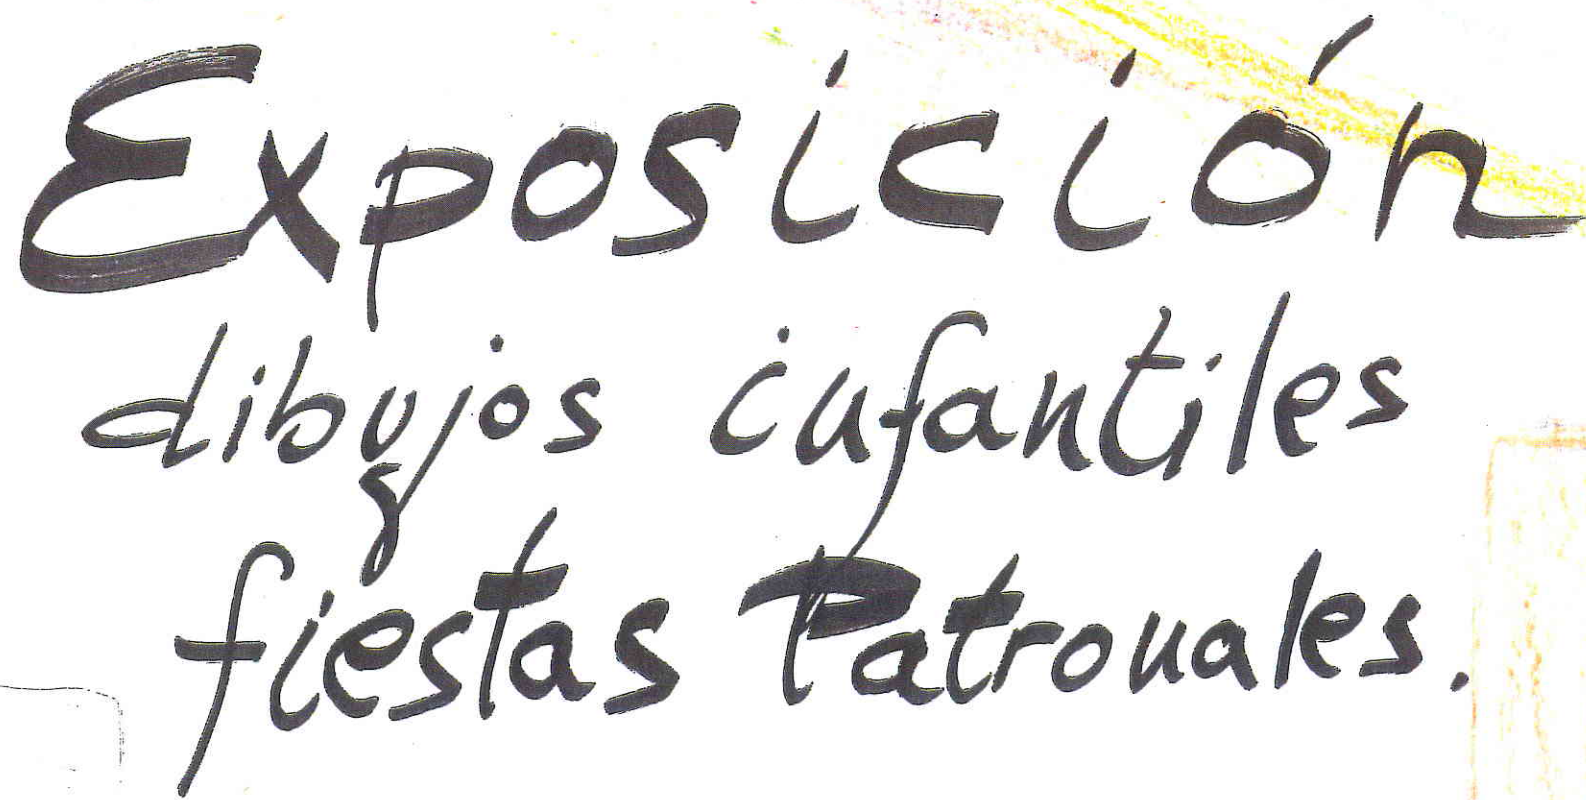 Exposición
dibujos infantiles
fiestas Patronales.